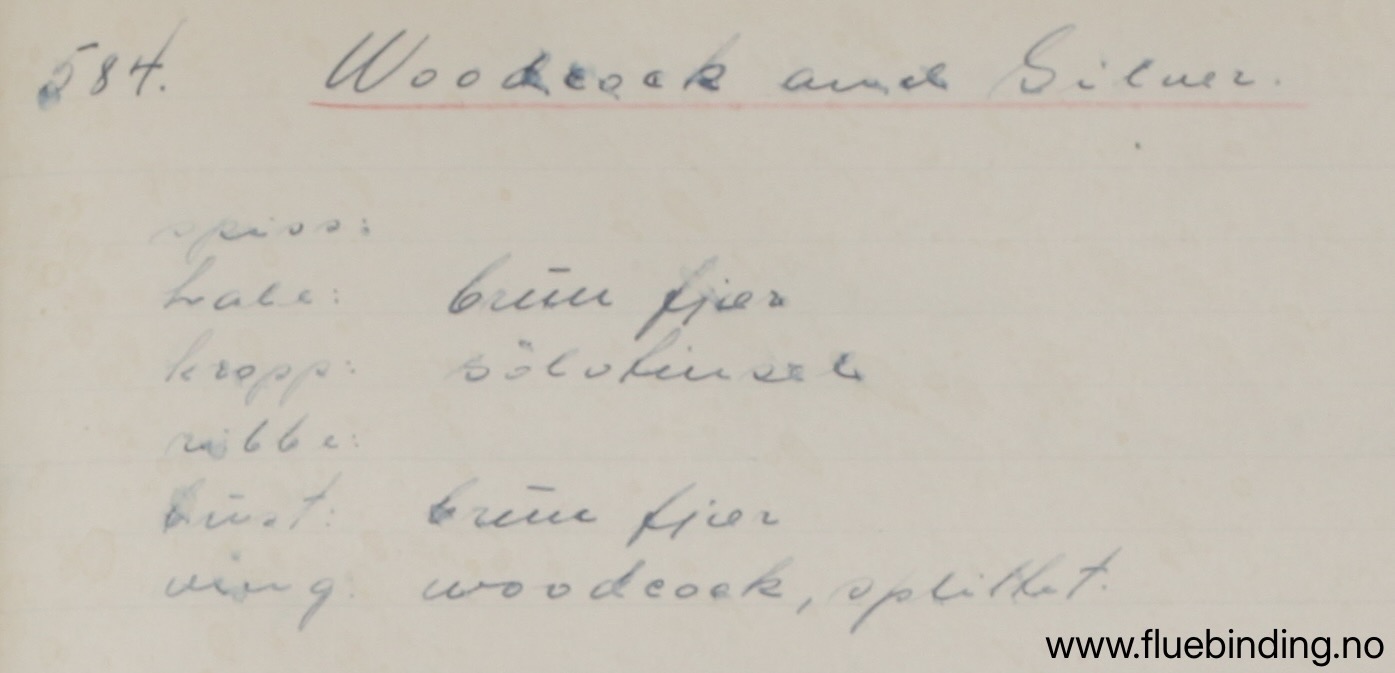 584. Woodcock and Silver.
spiss:
hale: brun fjær
kropp: sölvtinsel
ribbe:
bust: brun fjær
ving: woodcock, splittet.
www.fluebinding.no